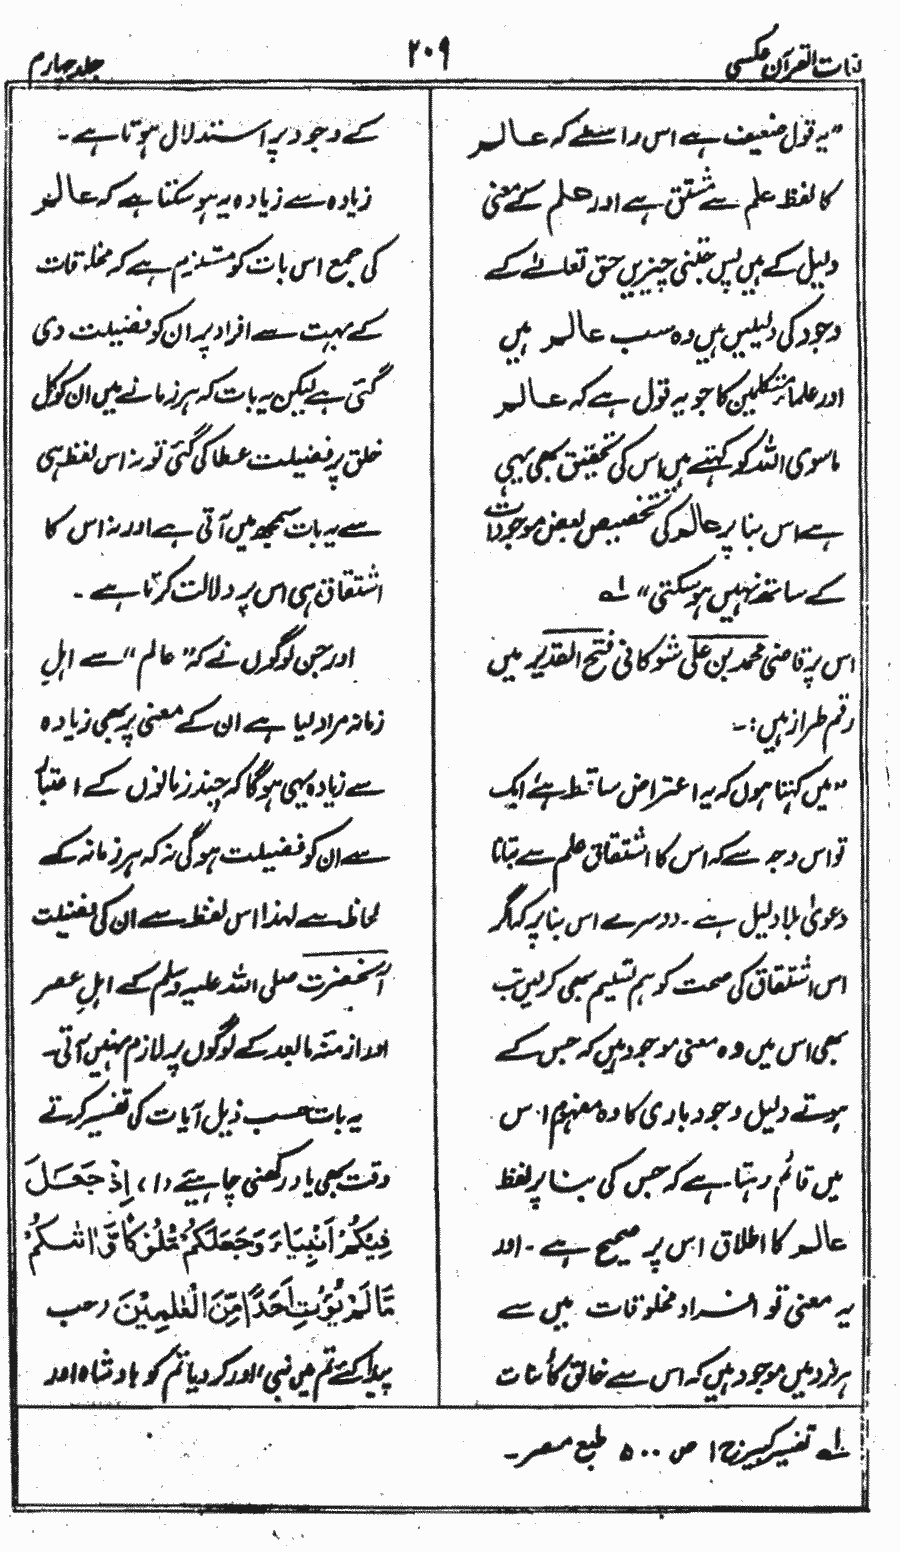 لغات القرآن عکسی
۲۰۹
جلد چہارم
”یہ قول ضعیف ہے اس واسطے کہ عالم
کا لفظ علم سے مشتق ہے اور علم کے معنی
دلیل کے ہیں پس جتنی چیزیں حق تعالےٰ کے
وجود کی دلیلیں ہیں وہ سب عالم ہیں
اور علماء متکلمین کا جو یہ قول ہے کہ عالم
ماسوی اللہ کو کہتے ہیں اس کی تحقیق بھی یہی
ہے اس بنا پر عالم کی تخصیص بعض موجودات
کے ساتھ نہیں ہو سکتی“ لہ
اس پر قاضی محمد بن علی شوکانی فتح القدیر میں
رقم طراز ہیں :-
”میں کہتا ہوں کہ یہ اعتراض ساقط ہے، ایک
تو اس وجہ سے کہ اس کا اشتقاق علم سے بتانا
دعویٰ بلا دلیل ہے۔ دوسرے اس بنا پر کہ اگر
اس اشتقاق کی صحت کو ہم تسلیم بھی کر لیں تب
بھی اس میں وہ معنی موجود ہیں کہ جس کے
ہوتے دلیل وجود باری کا وہ مفہوم اس
میں قائم رہتا ہے کہ جس کی بنا پر لفظ
عالم کا اطلاق اس پر صحیح ہے۔ اور
یہ معنی تو افراد مخلوقات میں سے
ہر فرد میں موجود ہیں کہ اس سے خالق کائنات
کے وجود پر استدلال ہوتا ہے۔
زیادہ سے زیادہ یہ ہو سکتا ہے کہ عالم
کی جمع اس بات کو مستلزم ہے کہ مخلوقات
کے بہت سے افراد پر ان کو فضیلت دی
گئی ہے لیکن یہ بات کہ ہر زمانے میں ان کو کل
خلق پر فضیلت عطا کی گئی تو نہ اس لفظ ہی
سے یہ بات سمجھ میں آتی ہے اور نہ اس کا
اشتقاق ہی اس پر دلالت کرتا ہے۔
اور جن لوگوں نے کہ ”عالم“ سے اہلِ
زمانہ مراد لیا ہے ان کے معنی پر بھی زیادہ
سے زیادہ یہی ہو گا کہ چند زمانوں کے اعتبار
سے ان کو فضیلت ہو گی نہ کہ ہر زمانہ کے
لحاظ سے لہذا اس لفظ سے ان کی فضیلت
آنحضرت صلی اللہ علیہ وسلم کے اہلِ عصر
اور ازمنہ مابعد کے لوگوں پر لازم نہیں آتی۔
یہ بات حسب ذیل آیات کی تفسیر کرتے
وقت بھی یاد رکھنی چاہیے (۱)، اِذْ جَعَلَ
فِیْکُمْ اَنْبِیَاءَ وَجَعَلَکُمْ مُّلُوْکًا وَّاٰتٰىکُمْ
مَّا لَمْ یُؤْتِ اَحَدًا مِّنَ الْعٰلَمِیْنَ (جب
پیدا کئے تم میں نبی، اور کر دیا تم کو بادشاہ اور
لہ تفسیر کبیر ج ۱ ص ۵۰۰ طبع مصر۔